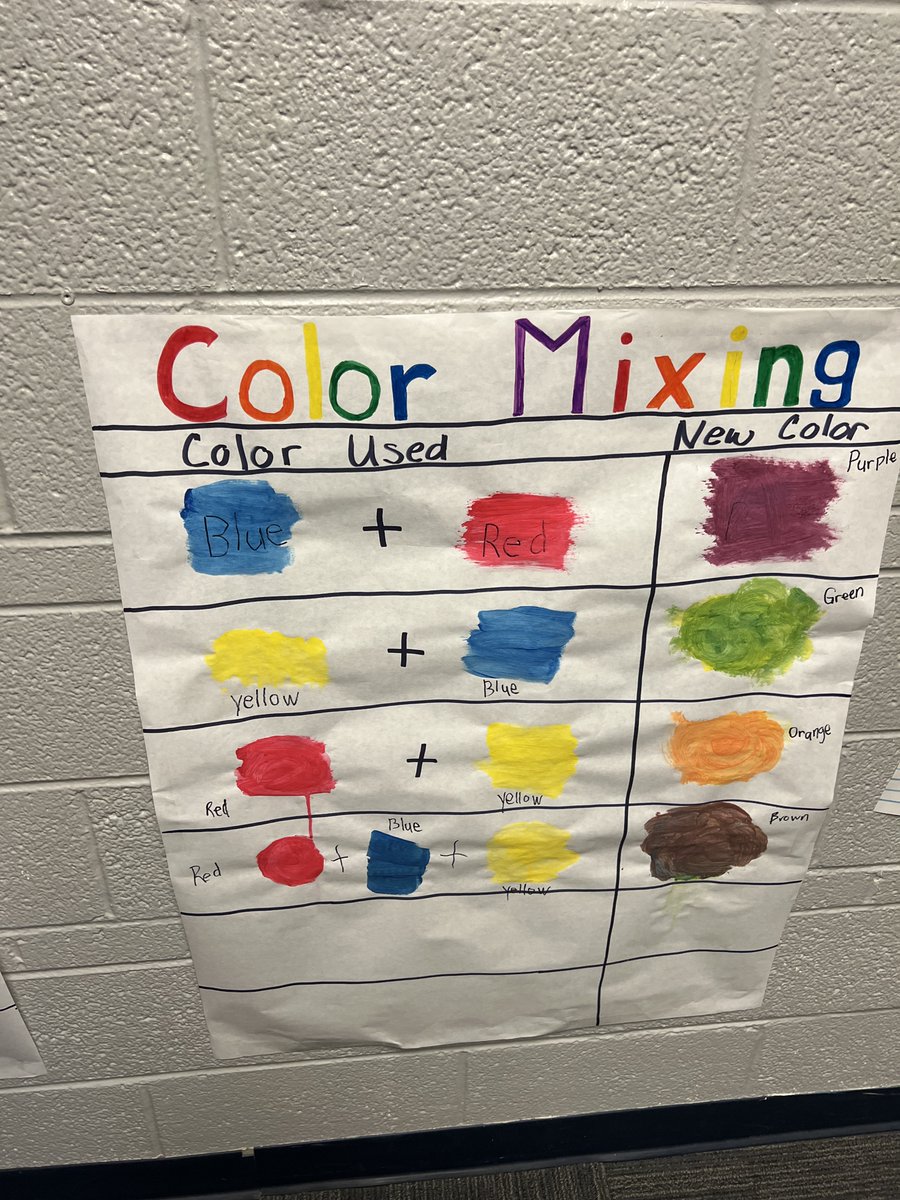 Color Mixing
Color Used New Color
Blue + Red Purple
yellow + Blue Green
Red + yellow Orange
Red + Blue + yellow Brown